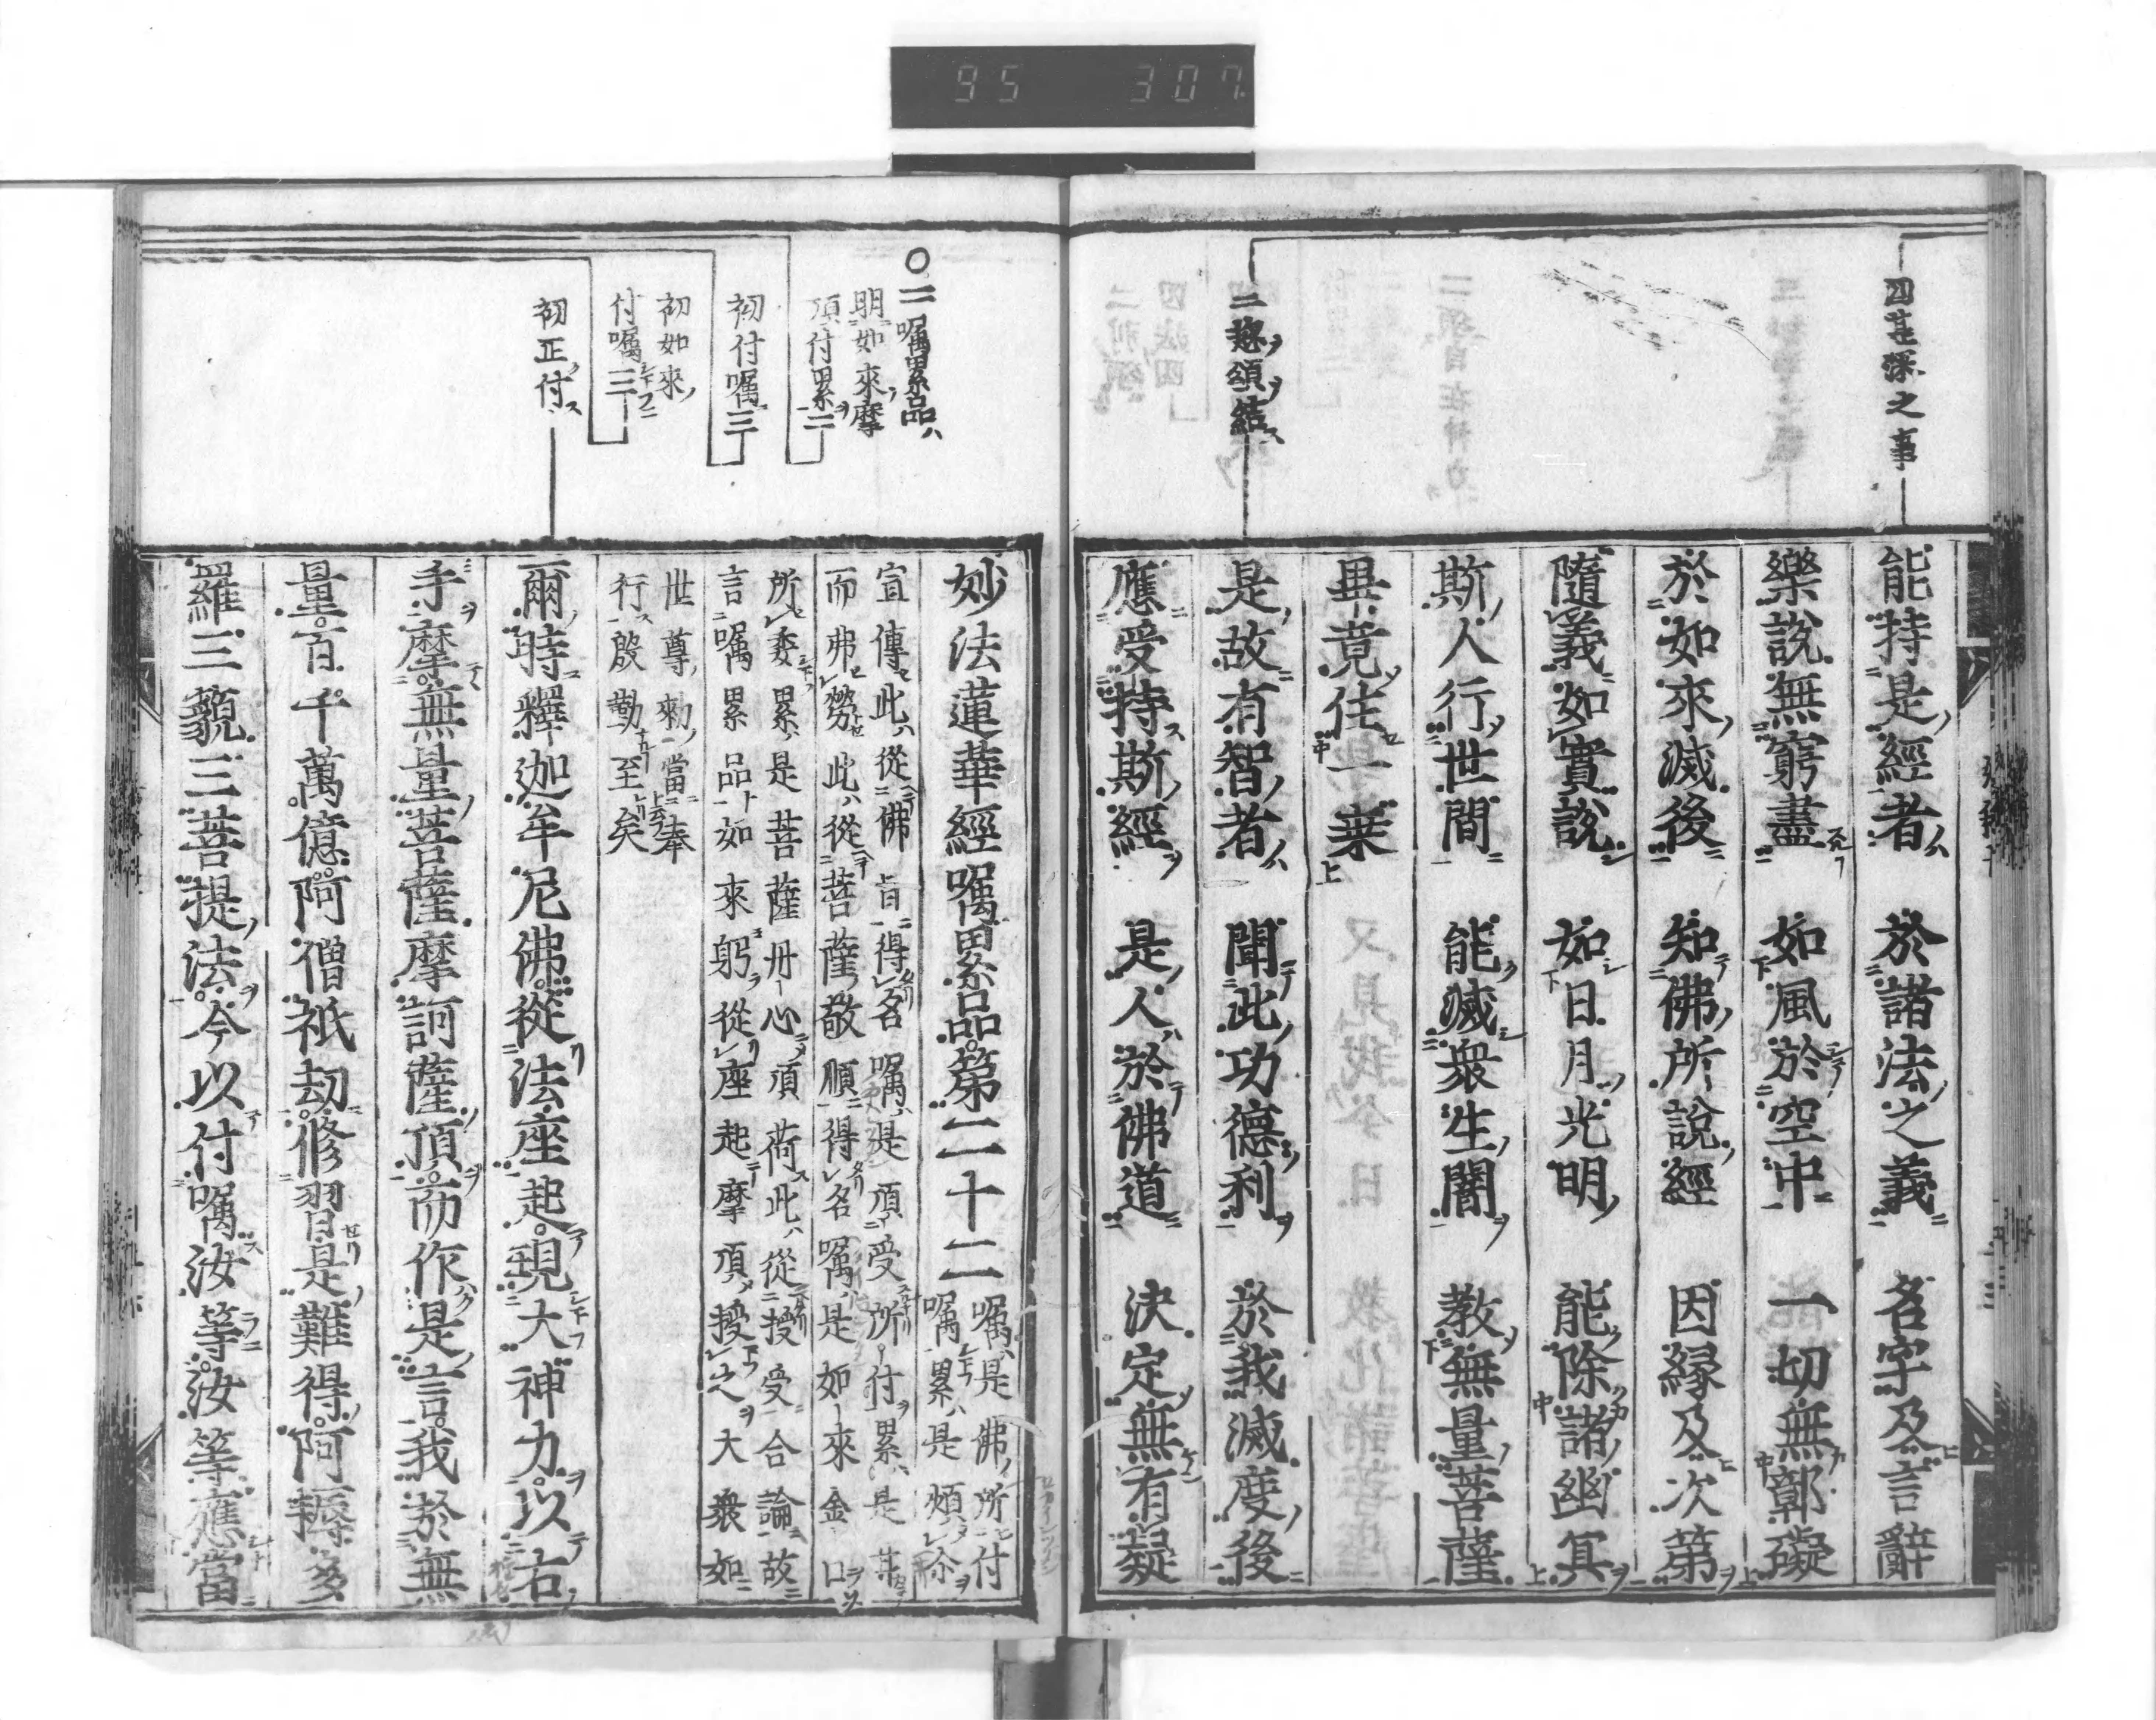 95 307
四甚深之事
二趣頌結
能持是經者 於諸法之義 名字及言辭
樂説無窮盡 如風於空中 一切無鄣礙
於如來滅後 知佛所説經 因縁及次第
隨義如實説 如日月光明 能除諸幽冥
斯人行世間 能滅衆生闇 教無量菩薩
畢竟住一乗
是故有智者 聞此功德利 於我滅度後
應受持斯經 是人於佛道 決定無有疑
〇二囑累品ハ
明如來摩
頂付累二
初付囑三
初如來
付囑三
初正付
妙法蓮華經囑累品第二十二
囑是佛所付
囑累是煩尒
宣傳此從佛旨得名囑是頂受所付累是甘
而弗勞此從菩薩敬順得名囑是如來金口
所委累是菩薩丹心頂荷此從授受合論故
言囑累品如來躬從座起摩頂授之大衆如
世尊勅當奉
行慇懃至矣
爾時釋迦牟尼佛從法座起現大神力以右
手摩無量菩薩摩訶薩頂而作是言我於無
量百千萬億阿僧祇劫修習是難得阿耨多
羅三藐三菩提法今以付囑汝等汝等應當